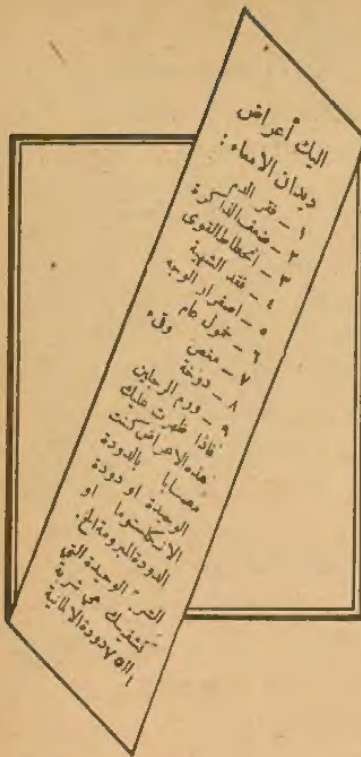 اليك أعراض
ديدان الامعاء :
١ – فقر الدم
٢ – ضعف الذاكرة
٣ – انحطاط القوى
٤ – فقد الشهية
٥ – اصفرار الوجه
٦ – خمول عام
٧ – مغص وقيء
٨ – دوخة
٩ – ورم الرجلين
فاذا ظهرت عليك
هذه الاعراض كنت
مصابا بالدودة
الوحيدة او دودة
الانكلستوما او
الدودة المبرومة الخ.
الوحيدة التى
تشفيك هى شربة
دودة الالمانية